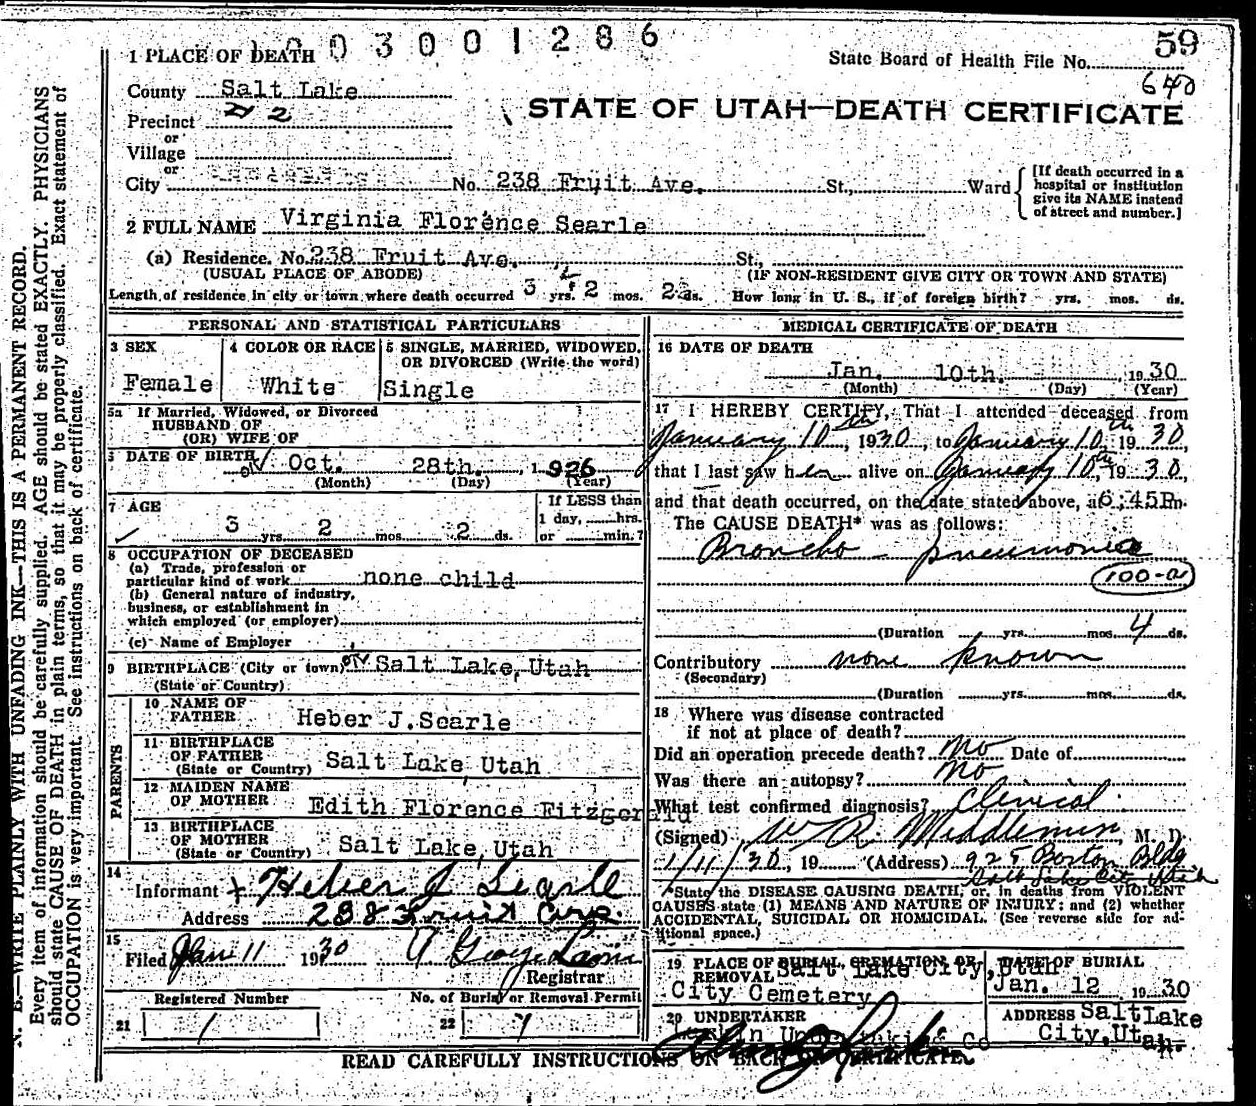 1003001286
59
1 PLACE OF DEATH
State Board of Health File No.
640
County Salt Lake
STATE OF UTAH—DEATH CERTIFICATE
Precinct # 2
or
Village
or
City No. 238 Fruit Ave. St., Ward
[If death occurred in a hospital or institution give its NAME instead of street and number.]
2 FULL NAME Virginia Florence Searle
(a) Residence. No. 238 Fruit Ave. St.,
(USUAL PLACE OF ABODE) (IF NON-RESIDENT GIVE CITY OR TOWN AND STATE)
Length of residence in city or town where death occurred 3 yrs. 2 mos. ds. How long in U. S., if of foreign birth? yrs. mos. ds.
PERSONAL AND STATISTICAL PARTICULARS
3 SEX
Female
4 COLOR OR RACE
White
5 SINGLE, MARRIED, WIDOWED, OR DIVORCED (Write the word)
Single
5a If Married, Widowed, or Divorced
HUSBAND OF
(OR) WIFE OF
6 DATE OF BIRTH Oct. 28th. , 1926
(Month) (Day) (Year)
7 AGE
3 yrs. 2 mos. 2 ds.
If LESS than
1 day, hrs.
or min.?
8 OCCUPATION OF DECEASED
(a) Trade, profession or
particular kind of work none child
(b) General nature of industry,
business, or establishment in
which employed (or employer)
(c) Name of Employer
9 BIRTHPLACE (City or town) Salt Lake, Utah
(State or Country)
PARENTS
10 NAME OF
FATHER Heber J. Searle
11 BIRTHPLACE
OF FATHER
(State or Country) Salt Lake, Utah
12 MAIDEN NAME
OF MOTHER Edith Florence Fitzgerald
13 BIRTHPLACE
OF MOTHER
(State or Country) Salt Lake, Utah
14
Informant Heber J Searle
Address
15
Filed Jan 11 1930
Registrar
Registered Number
No. of Burial or Removal Permit
21 1
22 1
MEDICAL CERTIFICATE OF DEATH
16 DATE OF DEATH
Jan. 10th. , 1930
(Month) (Day) (Year)
17 I HEREBY CERTIFY, That I attended deceased from
January 10th, 1930, to January 10th, 1930,
that I last saw her alive on January 10th, 1930,
and that death occurred, on the date stated above, at 6:45P m.
The CAUSE DEATH* was as follows:
Broncho - pneumonia
100-a
(Duration yrs. mos. 4 ds.
Contributory none known
(Secondary)
(Duration yrs. mos. ds.
18 Where was disease contracted
if not at place of death?
Did an operation precede death? No Date of
Was there an autopsy? No
What test confirmed diagnosis? Clinical
(Signed) W R Middlemiss, M. D.
1/11/30, 19 (Address) 925 Boston Bldg
Salt Lake City Utah
*State the DISEASE CAUSING DEATH, or, in deaths from VIOLENT
CAUSES state (1) MEANS AND NATURE OF INJURY; and (2) whether
ACCIDENTAL, SUICIDAL OR HOMICIDAL. (See reverse side for additional space.)
19 PLACE OF BURIAL, CREMATION OR
REMOVAL Salt Lake City, Utah
City Cemetery
DATE OF BURIAL
Jan. 12 1930
20 UNDERTAKER
ADDRESS Salt Lake
City, Utah.
READ CAREFULLY INSTRUCTIONS ON BACK OF CERTIFICATE.
N. B.—WRITE PLAINLY WITH UNFADING INK—THIS IS A PERMANENT RECORD.
Every item of information should be carefully supplied. AGE should be stated EXACTLY. PHYSICIANS
should state CAUSE OF DEATH in plain terms, so that it may be properly classified. Exact statement of
OCCUPATION is very important. See instructions on back of certificate.